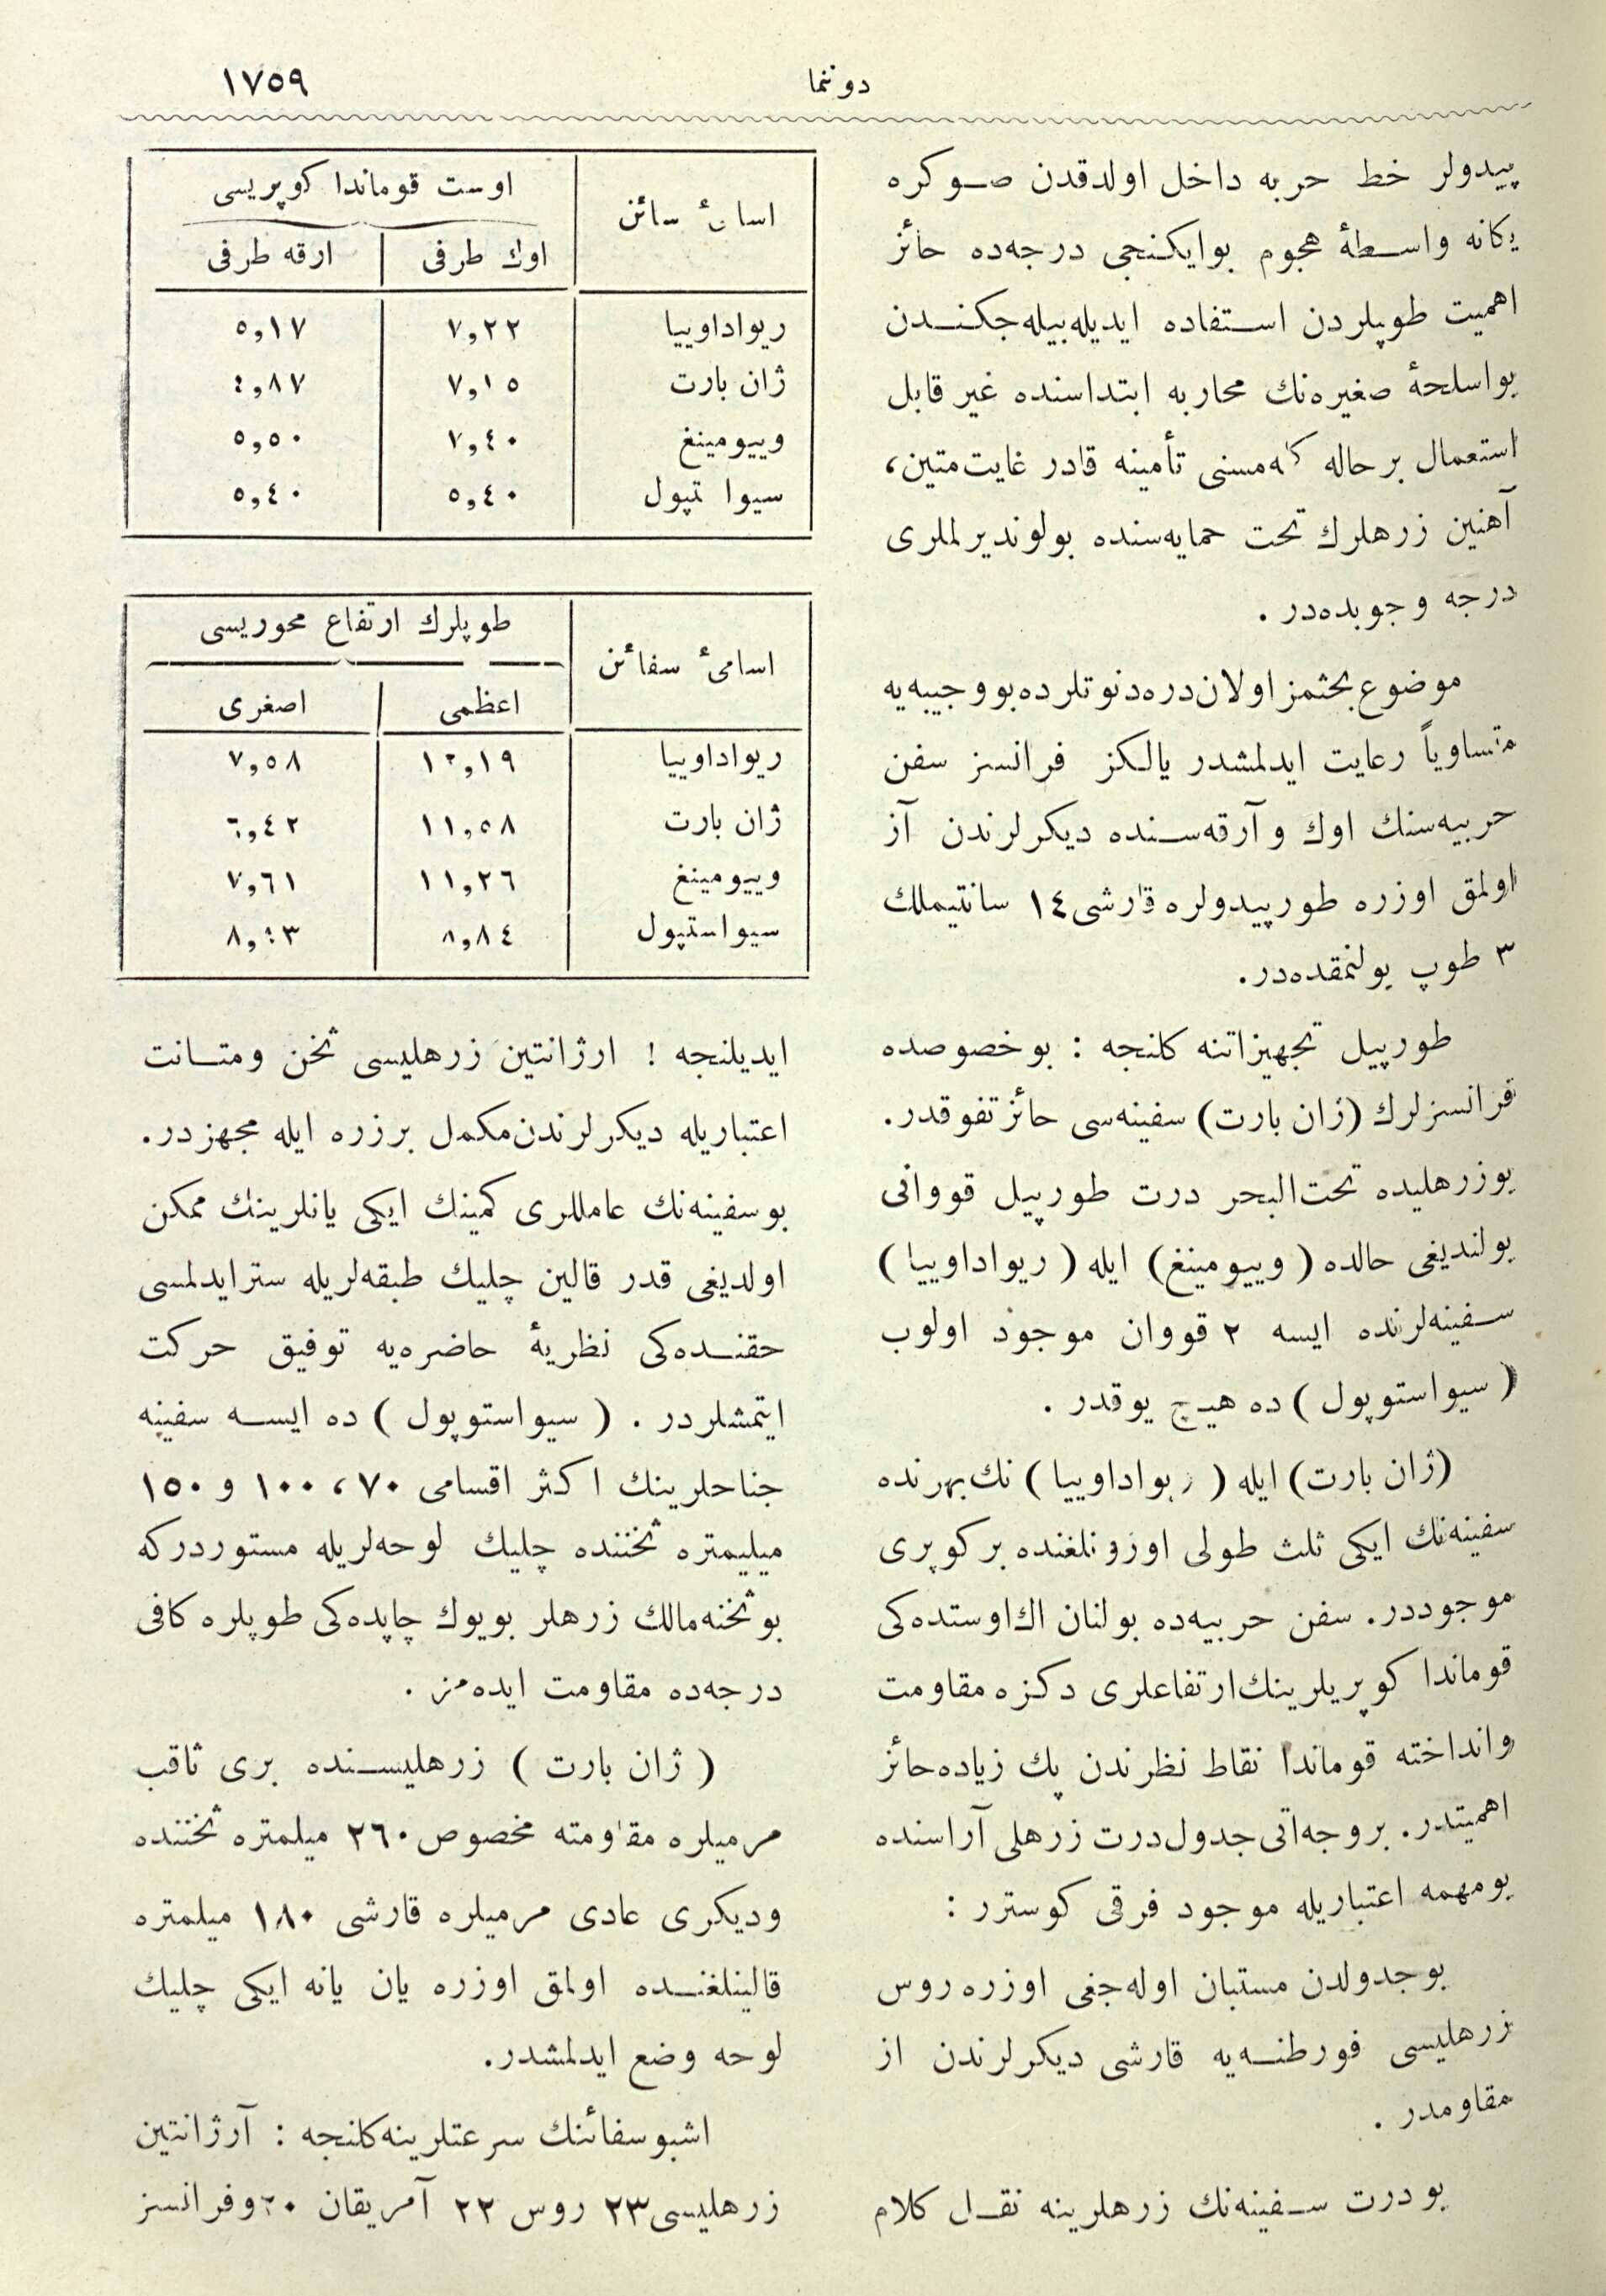 دوننما
١٧٥٩
پيدولر خط حربه داخل اولدقدن صوكره
يكانه واسطهٔ هجوم بوايكنجى درجه‌ده حائز
اهميت طوپلردن استفاده ايديله‌بيله‌جكندن
بواسلحهٔ صغيره‌نك محاربه ابتداسنده غير قابل
استعمال برحاله كلمه‌مسنى تأمينه قادر غايت‌متين،
آهنين زرهلرك تحت حمايه‌سنده بولونديرلملرى
درجه وجوبده‌در .
موضوع بحثمز اولان دره‌دنوتلرده بووجيبه‌يه
متساوياً رعايت ايدلمشدر يالكز فرانسز سفن
حربيه‌سنك اوك و آرقه‌سنده ديكرلرندن آز
اولمق اوزره طورپيدولره قارشى ١٤ سانتيملك
٣ طوپ بولنمقده‌در.
طورپيل تجهيزاتنه كلنجه : بوخصوصده
فرانسزلرك (ژان بارت) سفينه‌سى حائز تفوقدر.
بوزرهليده تحت‌البحر درت طورپيل قووانى
بولنديغى حالده (وييومينغ) ايله (ريواداوييا)
سفينه‌لرنده ايسه ٢ قووان موجود اولوب
(سيواستوپول) ده هيچ يوقدر .
(ژان بارت) ايله (ريواداوييا) نك بهرنده
سفينه‌نك ايكى ثلث طولى اوزونلغنده بركوپرى
موجوددر. سفن حربيه‌ده بولنان اك‌اوستده‌كى
قوماندا كوپريلرينك‌ارتفاعلرى دكزه مقاومت
وانداخته قوماندا نقاط نظرندن پك زياده‌حائز
اهميتدر. بروجه‌آتى جدول درت زرهلى آراسنده
بومهمه اعتباريله موجود فرقى كوسترر :
بوجدولدن مستبان اوله‌جغى اوزره روس
زرهليسى فورطنه‌يه قارشى ديكرلرندن از
مقاومدر .
بودرت سفينه‌نك زرهلرينه نقل كلام
اسامئ سفائن
اوست قوماندا كوپريسى
اوك طرفى ارقه طرفى
ريواداوييا ٧,٢٢ ٥,١٧
ژان بارت ٧,١٥ ٤,٨٧
وييومينغ ٧,٤٠ ٥,٥٠
سيواستپول ٥,٤٠ ٥,٤٠
اسامئ سفائن
طوپلرك ارتفاع محوريسى
اعظمى اصغرى
ريواداوييا ٧,٥٨
ژان بارت ١١,٥٨ ٦,٤٢
وييومينغ ١١,٢٦ ٧,٦١
سيواستپول ٨,٨٤
ايديلنجه ! ارژانتين زرهليسى ثخن ومتانت
اعتباريله ديكرلرندن‌مكمل برزره ايله مجهزدر.
بوسفينه‌نك عامللرى كمينك ايكى يانلرينك ممكن
اولديغى قدر قالين چليك طبقه‌لريله سترايدلمسى
حقنده‌كى نظريهٔ حاضره‌يه توفيق حركت
ايتمشلردر . (سيواستوپول) ده ايسه سفينه
جناحلرينك اكثر اقسامى ٧٠، ١٠٠ و ١٥٠
ميليمتره ثخننده چليك لوحه‌لريله مستوردركه
بوثخنه‌مالك زرهلر بويوك چاپده‌كى طوپلره كافى
درجه‌ده مقاومت ايده‌مز .
(ژان بارت) زرهليسنده برى ثاقب
مرميلره مقاومته مخصوص ٢٦٠ ميلمتره ثخننده
وديكرى عادى مرميلره قارشى ١٨٠ ميلمتره
قالينلغنده اولمق اوزره يان يانه ايكى چليك
لوحه وضع ايدلمشدر.
اشبوسفائنك سرعتلرينه‌كلنجه : آرژانتين
زرهليسى ٢٣ روس ٢٢ آمريقان ٢٠ وفرانسز